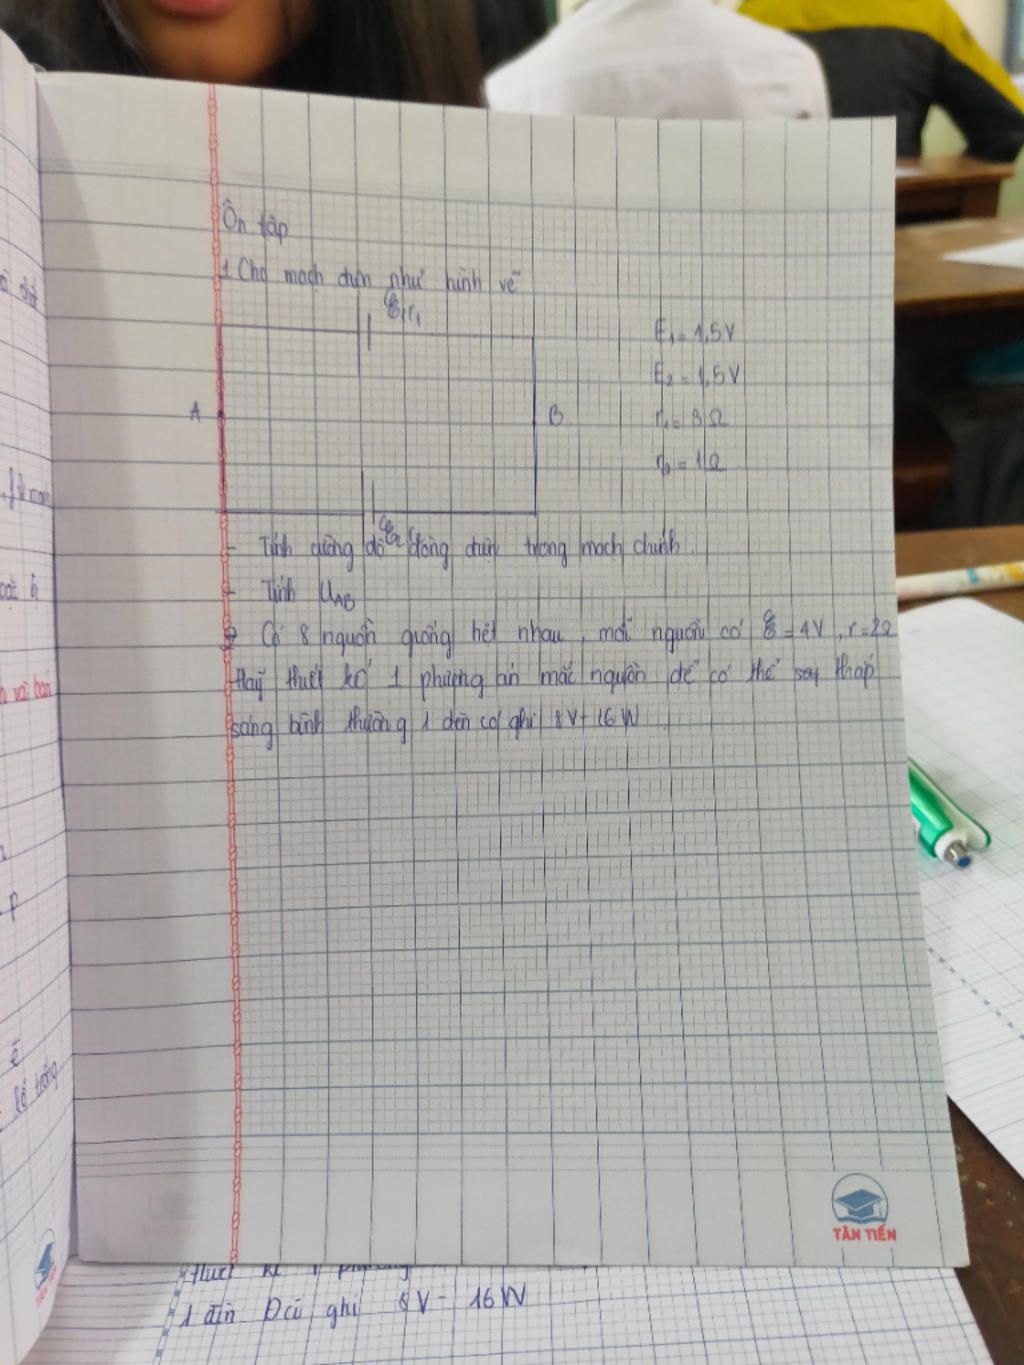 Ôn tập
1. Cho mạch điện như hình vẽ
E₁ r₁
E₁ = 1,5V
E₂ = 1,5V
A
B
r₁ = 3Ω
r₂ = 1Ω
- Tính cường độ dòng điện trong mạch chính.
- Tính UAB
2 Có 8 nguồn giống hệt nhau, mỗi nguồn có E = 4V, r = 2Ω
Hãy thiết kế 1 phương án mắc nguồn để có thể thắp
sáng bình thường 1 đèn có ghi 8V - 16W
TÂN TIẾN
1 đèn Đ có ghi 8V - 16W